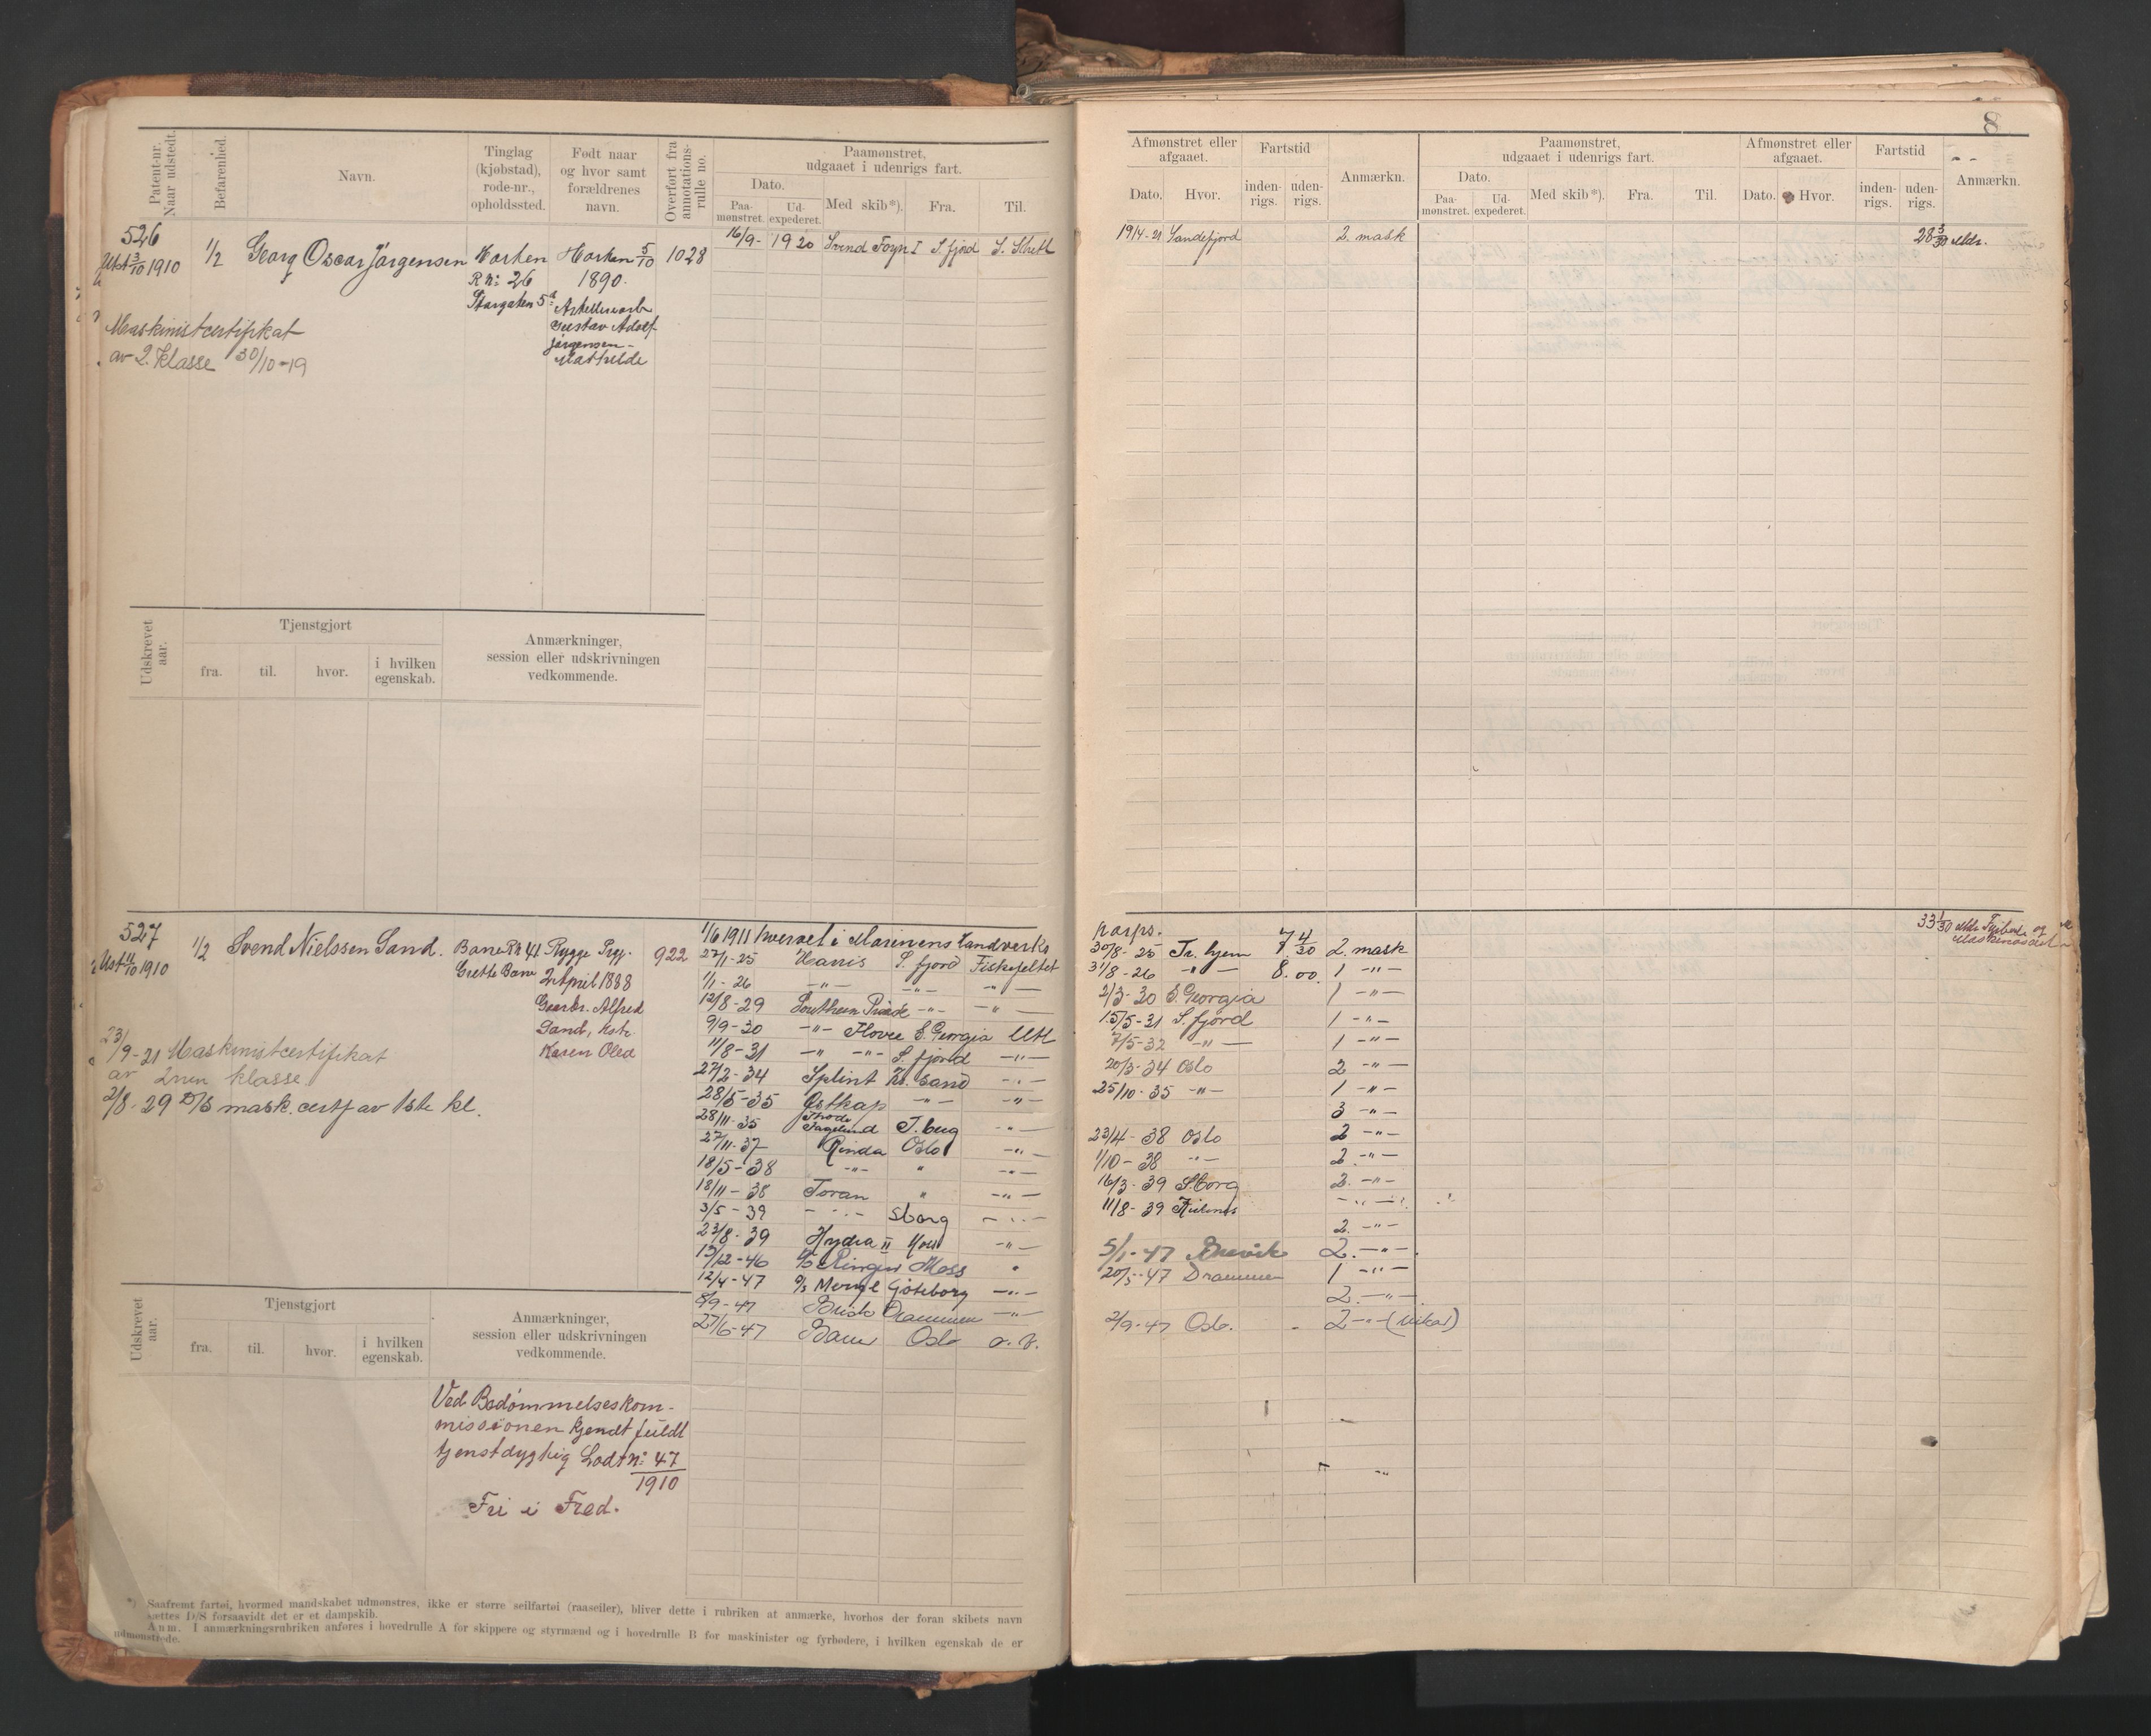 8
Patent-nr. Naar udstedt.
Befarenhed.
Navn.
Tinglag (kjøbstad), rode-nr., opholdssted.
Født naar og hvor samt forældrenes navn.
Overført fra annotations-rulle no.
Paamønstret, udgaaet i udenrigs fart.
Dato.
Paa-mønstret.
Ud-expederet.
Med skib*).
Fra.
Til.
Afmønstret eller afgaaet.
Fartstid
Dato.
Hvor.
inden-rigs.
uden-rigs.
Anmærkn.
Paamønstret, udgaaet i udenrigs fart.
Dato.
Paa-mønstret.
Ud-expederet.
Med skib*).
Fra.
Til.
Afmønstret eller afgaaet.
Fartstid
Dato.
Hvor.
inden-rigs.
uden-rigs.
Anmærkn.
526
Utst 3/10 1910
1/2 Georg Oscar Jørgensen
Horten
R n: 26
Storgaten 5
Horten 5/10
1890.
Gustav Adolf
Jørgensen
Mathilde
1028
16/9- 1920 Svend Foyn I S.fjord
19/4-21 Sandefjord 2. mask
28 5/30 Mdr.
Maskinistcertifikat
av 2. Klasse 30/10-19
Udskrevet aar.
Tjenstgjort
fra.
til.
hvor.
i hvilken egenskab.
Anmærkninger, session eller udskrivningen vedkommende.
527
Utst 11/10 1910
1/2 Svend Nielssen Sand.
Bane R n 41
Rygge Prg.
2 April 1888
Alfred
Sand,
Karen
922
1/6 1911 hvervet i Marinens Handverks
korps.
27/1-25 Harris S. fjord Fiskefeltet
30/8-25 Tr. hjem 7 4/30 2. mask
1/1-26 -"- -"- -"-
31/8-26 -"- 8.00. 1 -"-
12/8-29 Southern -"- -"-
2/3-30 S. Georgia 1 -"-
9/9-30 -"- S. Georgia
15/5-31 S. fjord 1 -"-
11/8-31 -"- -"- S. fjord -"-
7/5-32 -"- 1 -"-
27/2-34 Splint Kr. sand -"-
20/3-34 Oslo 2 -"-
28/5-35 Østkap -"- -"-
25/10-35 -"- 1 -"-
28/11-35 Thode Fagelund T.berg -"-
3 -"-
27/11-37 Rinda Oslo -"-
23/4-38 Oslo 2 -"-
18/5-38 -"- " -"-
1/10-38 -"- 2 -"-
18/11-38 Toran " -"-
16/3-39 S.borg 2. -"-
3/5-39 -"- Sborg -"-
11/8-39
23/8-39 Hydra II -"-
2. -"-
13/12-46 Ringen Moss "
5/1-47 Brevik 2. -"-
12/4-47 Göteborg -"-
20/5-47 Drammen 1 -"-
8/9-47 Drammen -"-
2. -"-
27/6-47 Oslo
2/9-47 Oslo. 2 -"- (vikar)
33 1/30 Mdr. Fyrbøder og
23/9-21 Maskinistcertifikat
av 2nen klasse
2/8-29 D/S mask. certf av 1ste kl.
Udskrevet aar.
Tjenstgjort
fra.
til.
hvor.
i hvilken egenskab.
Anmærkninger, session eller udskrivningen vedkommende.
Ved Bedømmelseskom-
missionen kjendt fuldt
tjenstdygtig Lodt n: 47
1910
Fri i Fred.
*) Saafremt fartøi, hvormed mandskabet udmønstres, ikke er større seilfartøi (raaseiler), bliver dette i rubriken at anmærke, hvorhos der foran skibets navn
sættes D/S forsaavidt det er et dampskib.
Anm. I anmærkningsrubriken anføres i hovedrulle A for skippere og styrmænd og i hovedrulle B for maskinister og fyrbødere, i hvilken egenskab de er
udmønstrede.